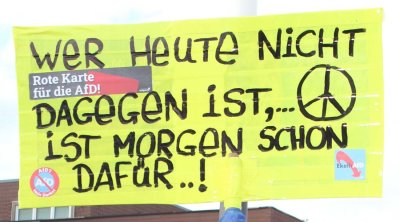 WER HEUTE NICHT
Rote Karte
für die AfD!
DAGEGEN IST,...
IST MORGEN SCHON
DAFÜR..!